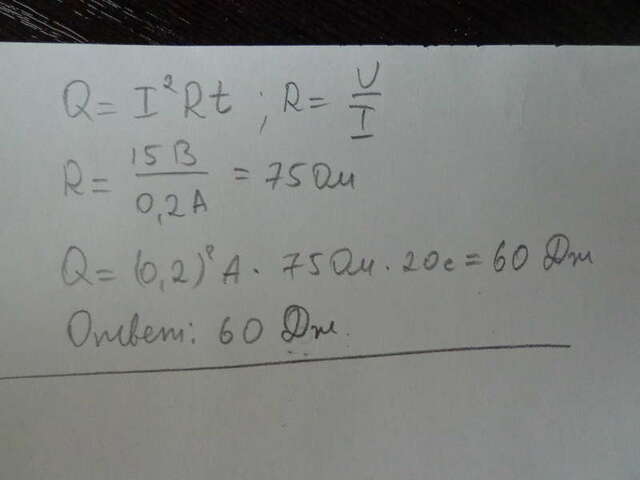 Q = I²Rt ; R = U/I
R = 15 В / 0,2 А = 75 Ом
Q = (0,2)² А · 75 Ом · 20 с = 60 Дж
Ответ: 60 Дж.